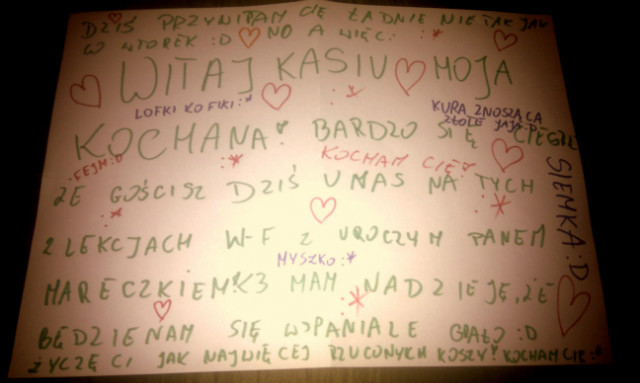 DZIŚ PRZYWITAM CIĘ ŁADNIE NIE TAK JAK
W WTOREK :D NO A WIĘC: :*
WITAJ KASIU MOJA
LOFKI KOFIKI :*
KURA ZNOSZĄCA
ZŁOTE JAJA :D
KOCHANA! BARDZO SIĘ CIESZĘ
:FEJM:D
KOCHAM CIĘ!
ŻE GOŚCISZ DZIŚ U NAS NA TYCH
SIEMKA :D
2 LEKCJACH W-F Z UROCZYM PANEM
MYSZKO :*
MARECZKIEM! <3 MAM NADZIEJĘ, ŻE
BĘDZIE NAM SIĘ WSPANIALE GRAŁO :D
ŻYCZĘ CI JAK NAJWIĘCEJ RZUCONYCH KOSZY! KOCHAM CIE :*